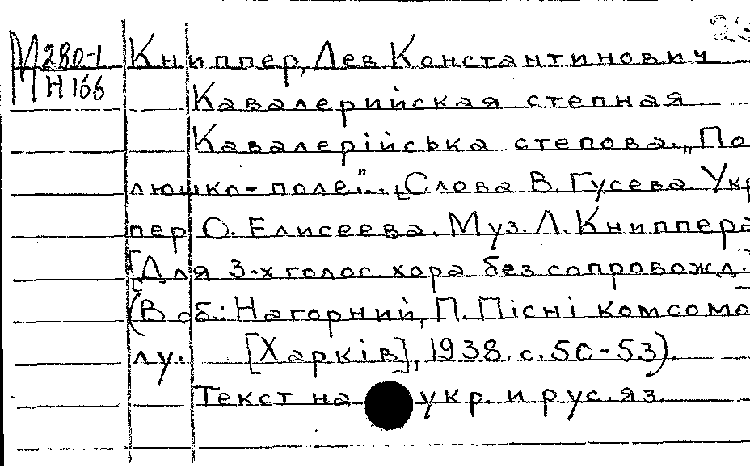 М 280-1 Книппер, Лев Константинович
Н 166
Кавалерийская степная
Кавалерiйська степова. „По
люшко-поле". [Слова В. Гусева Укр
пер О. Елисеева. Муз. Л. Книппера
[Для 3-х голос хора без сопровожд.]
(В сб.: Нагорний, П. Пiснi комсомо
лу. [Харкiв], 1938. с. 50-53).
Текст на укр. и рус. яз.